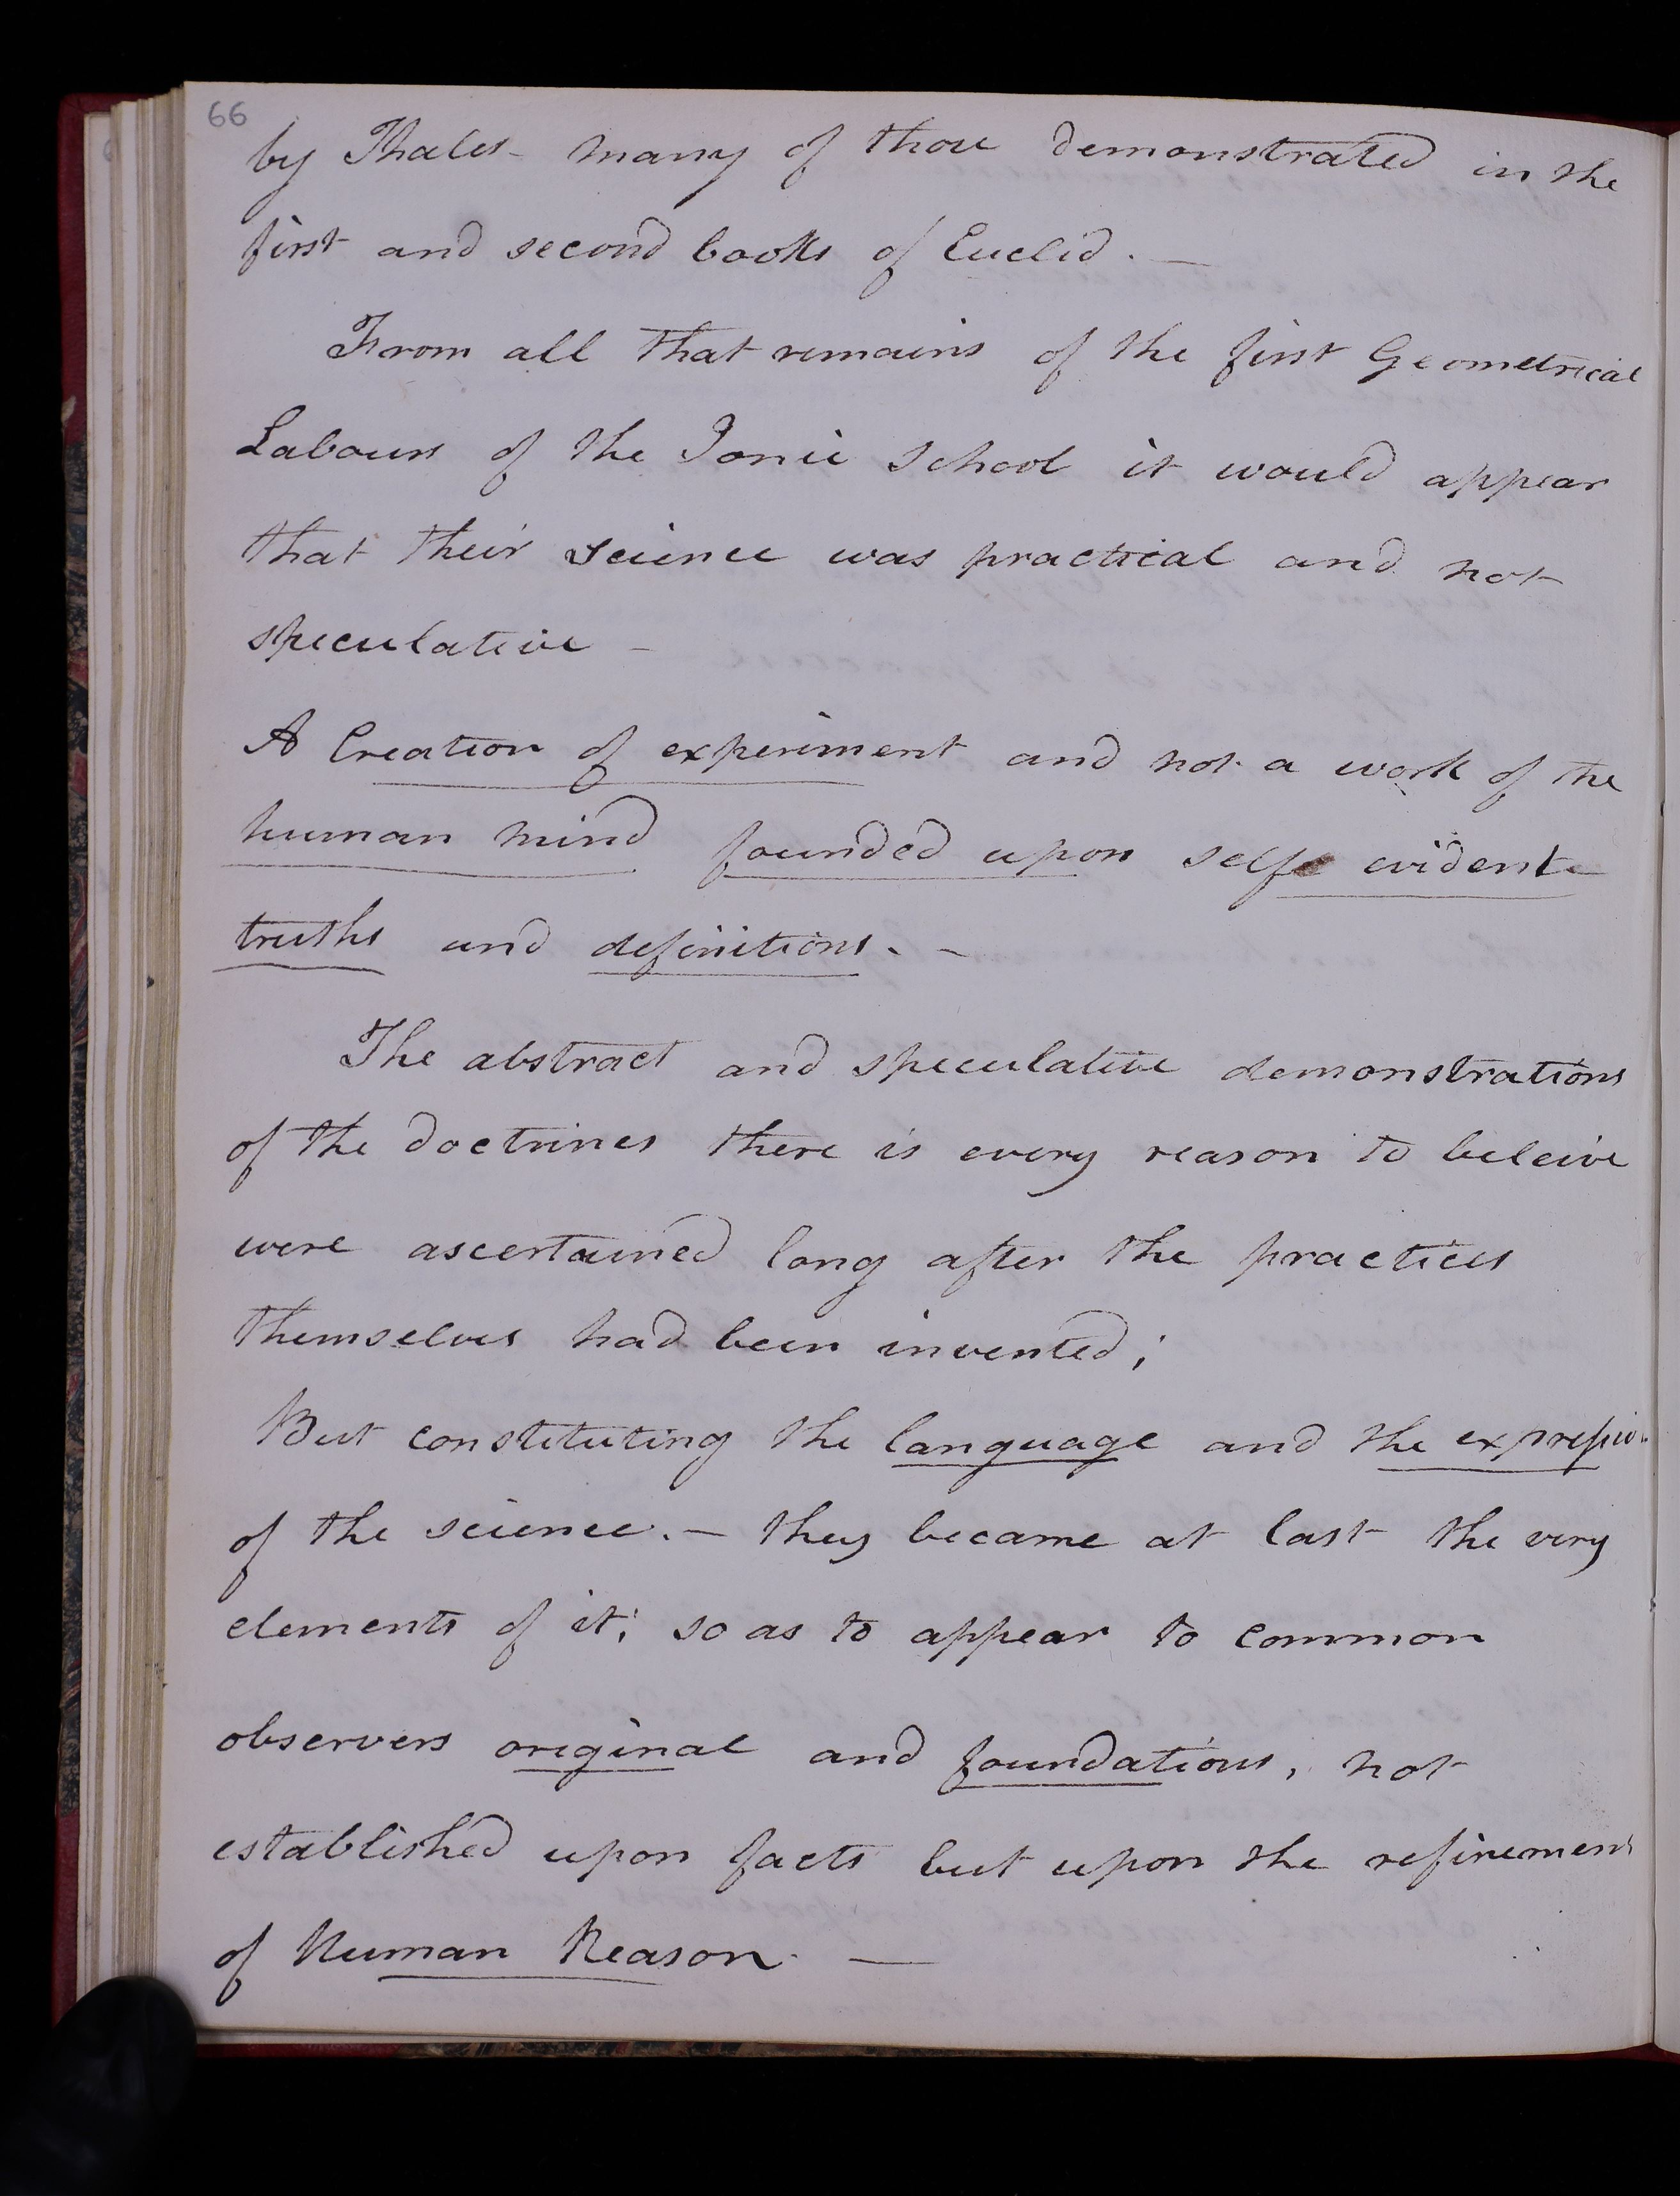 66
by Thales - many of those demonstrated in the
first and second books of Euclid. —
From all that remains of the first Geometrical
Labours of the Ionic School it would appear
that their science was practical and not
speculative -
A Creation of experiment and not a work of the
human mind founded upon self evident
truths and definitions. -
The abstract and speculative demonstrations
of the doctrines there is every reason to beleive
were ascertained long after the practices
themselves had been invented;
But constituting the language and the expression
of the science. — they became at last the very
elements of it; so as to appear to common
observers original and foundations, not
established upon facts but upon the refinement
of Human Reason. —